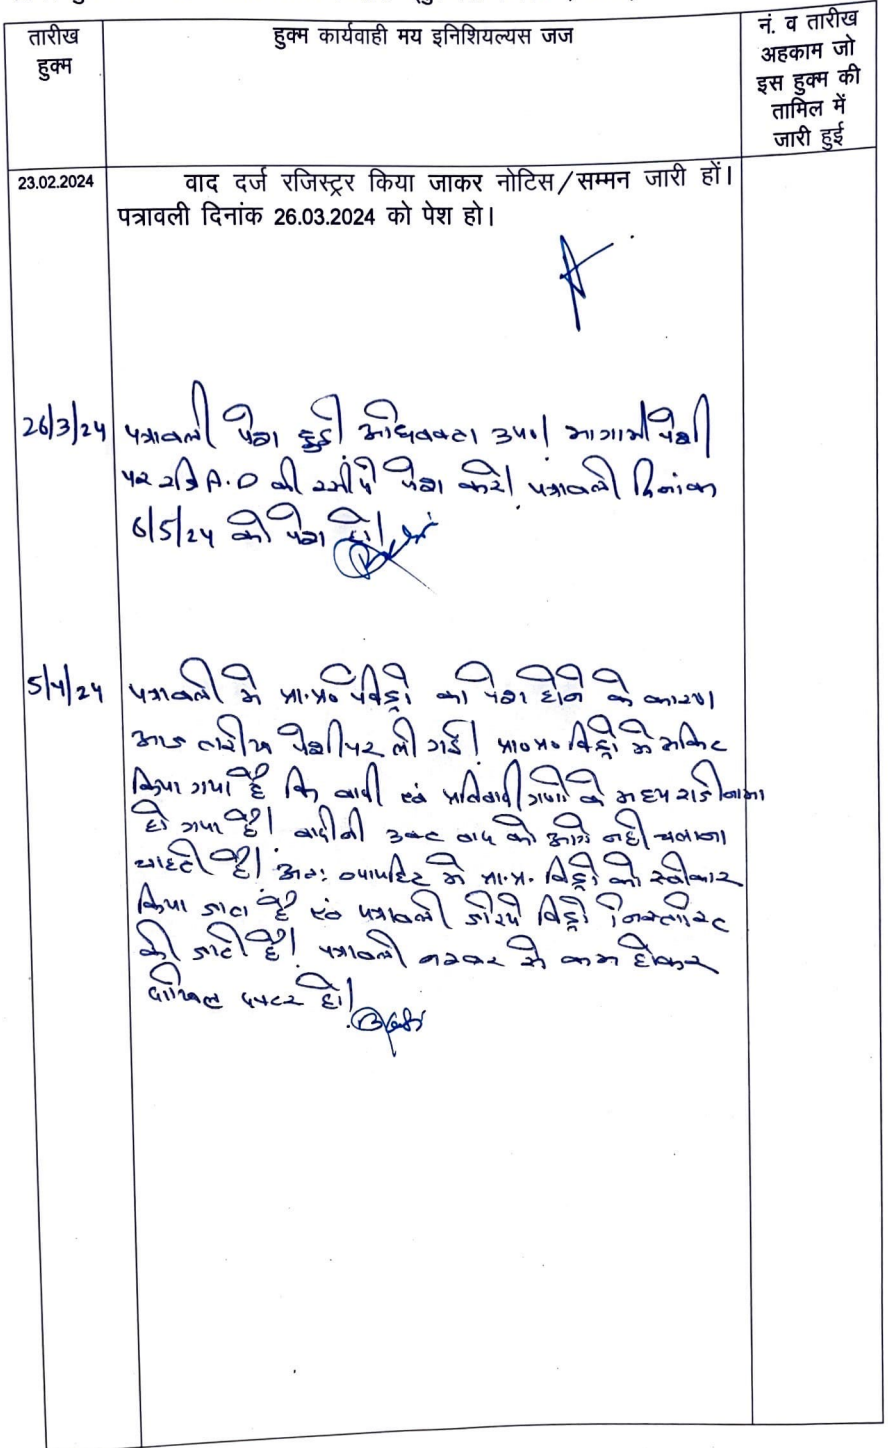 तारीख
हुक्म
हुक्म कार्यवाही मय इनिशियल्यस जज
नं. व तारीख
अहकाम जो
इस हुक्म की
तामिल में
जारी हुई
23.02.2024
वाद दर्ज रजिस्ट्रर किया जाकर नोटिस/सम्मन जारी हों।
पत्रावली दिनांक 26.03.2024 को पेश हो।
26/3/24
पत्रावली पेश हुई अधिवक्ता उप०। आगामी पेशी
पर रजि A.D की रसीदे पेश करे। पत्रावली दिनांक
6/5/24 को पेश हो।
5/4/24
पत्रावली मे प्रा.प्र० विड्रो का पेश होने के कारण
आज तारीख पेशी पर ली गई। प्रा०प्र० विड्रो मे अंकित
किया गया है कि वादी एवं प्रतिवादी गणो के मध्य राजीनामा
हो गया है। वादीनी उक्त वाद को आगे नही चलाना
चाहते है। अतः न्यायहित मे प्रा.प्र. विड्रो को स्वीकार
किया जाता है एवं पत्रावली जरिये विड्रो निस्तारित
की जाती है। पत्रावली नम्बर से कम होकर
दाखिल दफ्तर हो।